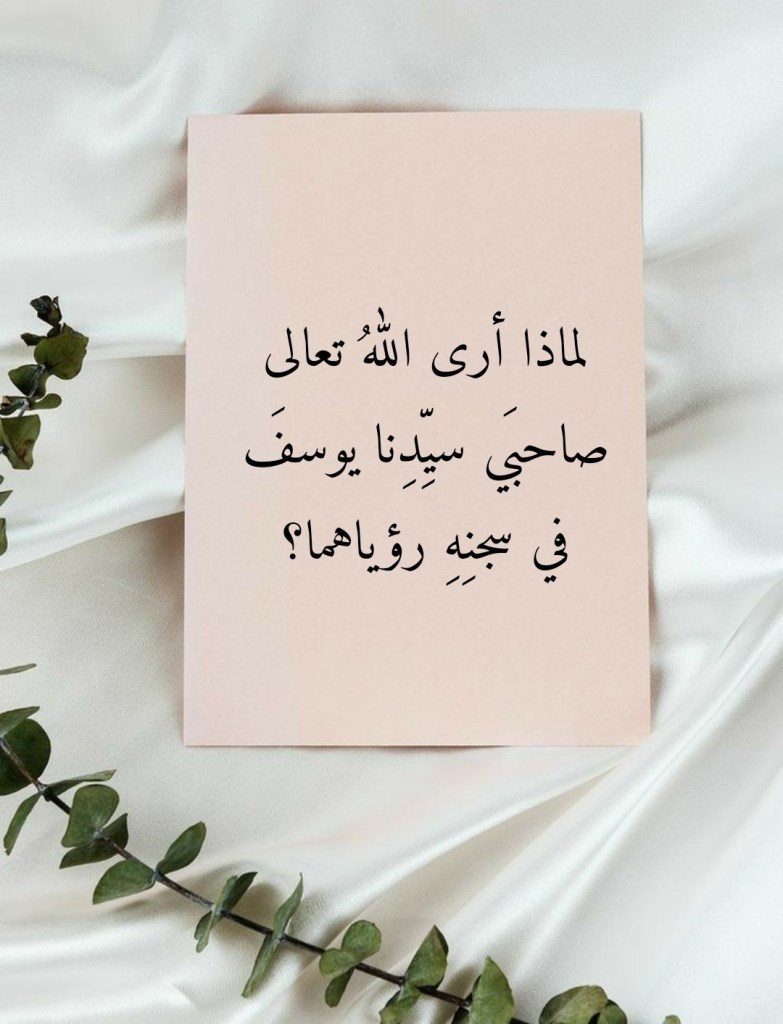 لماذا أرى اللهُ تعالى
صاحبَي سيِّدِنا يوسفَ
في سجنِهِ رؤياهما؟